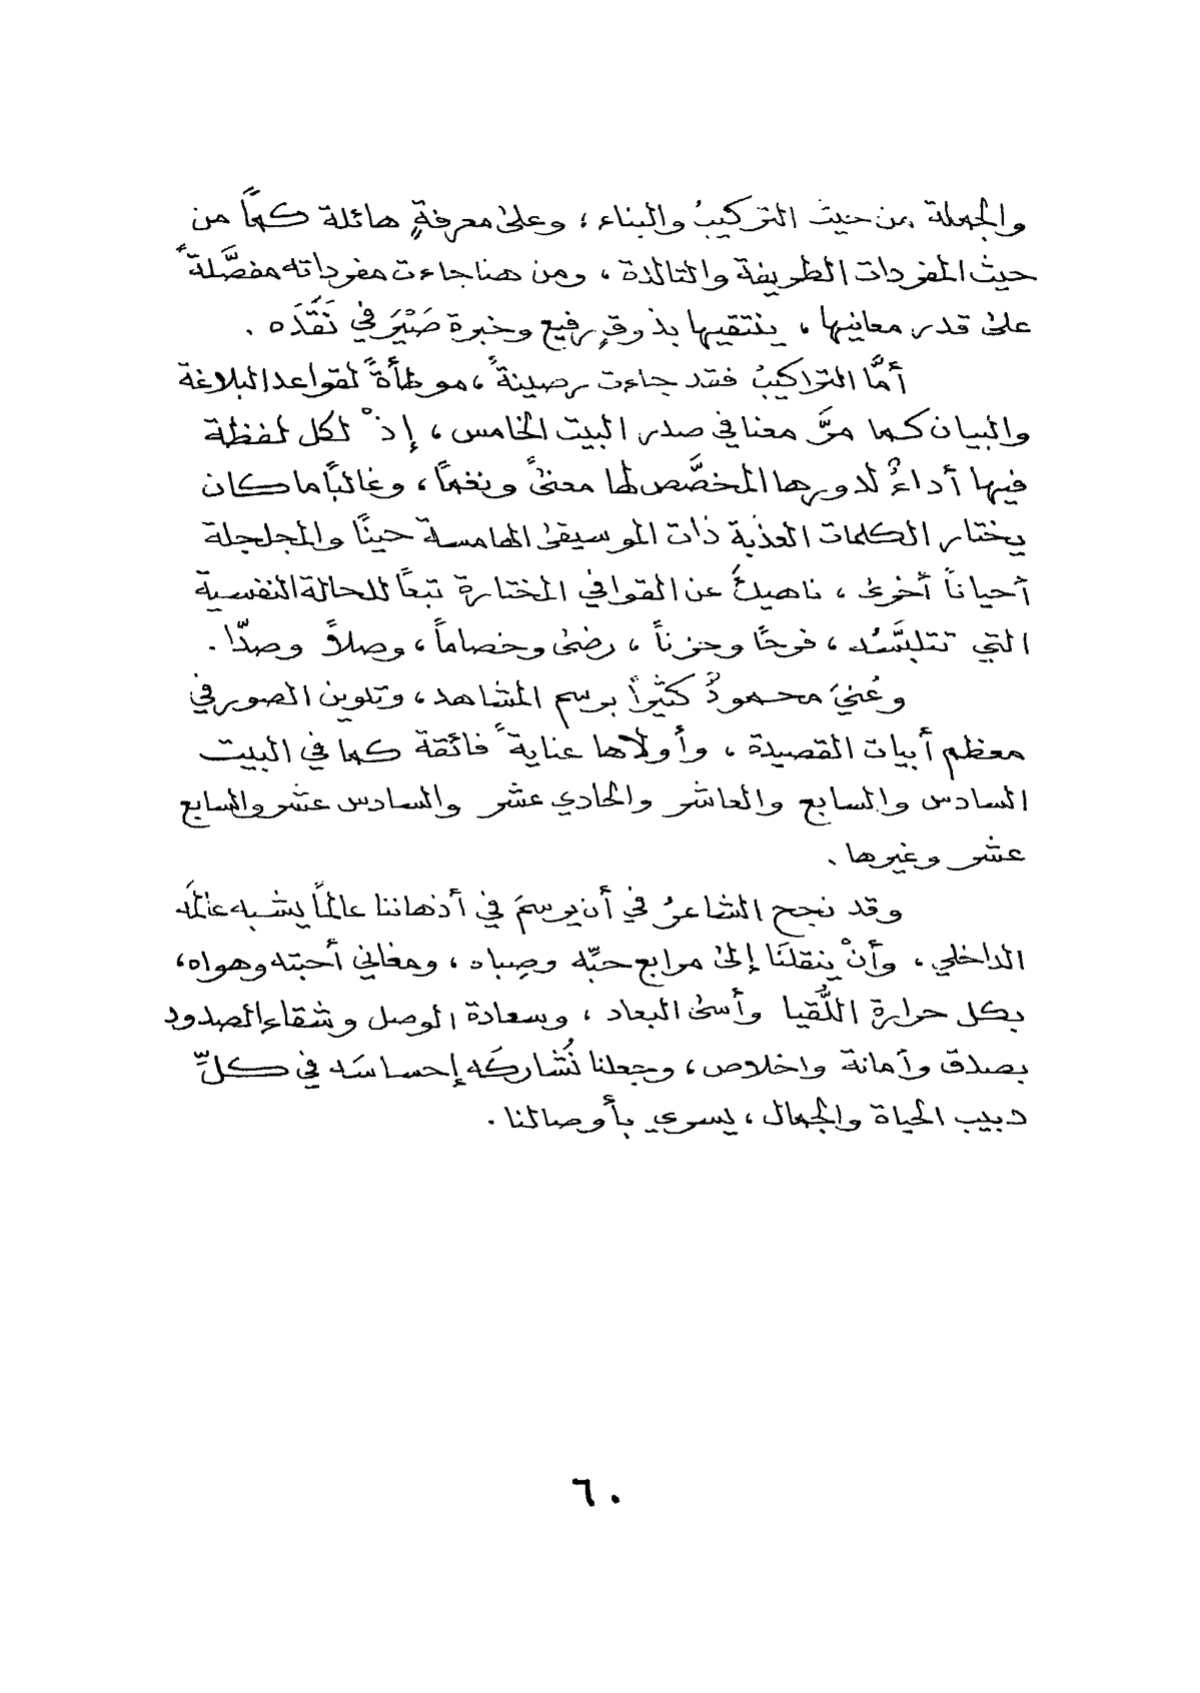 والجملة من حيث التركيبُ والبناء ، وعلى معرفةٍ هائلة كمّاً من
حيث المفردات الطريفة والتالدة ، ومن هنا جاءت مفرداته مفصَّلةً
على قدر معانيها ، ينتقيها بذوقٍ رفيع وخبرة صَيْرَفي نَقَّدَه .
أمَّا التراكيبُ فقد جاءت رصينةً ، موطأةً لقواعد البلاغة
والبيان كما مرَّ معنا في صدر البيت الخامس ، إذْ لكل لفظة
فيها أداءٌ لدورها المخصَّص لها معنىً ونغماً ، وغالباً ما كان
يختار الكلمات العذبة ذات الموسيقى الهامسة حيناً والمجلجلة
أحياناً أخرى ، ناهيكَ عن القوافي المختارة تبعاً للحالة النفسية
التي تتلبَّسُه ، فرحاً وحزناً ، رضىً وخصاماً ، وصلاً وصدّاً .
وعُنيَ محمودٌ كثيراً برسم المشاهد ، وتلوين الصور في
معظم أبيات القصيدة ، وأولاها عنايةً فائقة كما في البيت
السادس والسابع والعاشر والحادي عشر والسادس عشر والسابع
عشر وغيرها .
وقد نجح الشاعرُ في أن يرسمَ في أذهاننا عالماً يشبه عالمَه
الداخلي ، وأنْ ينقلنَا إلى مرابع حبِّه وصِباه ، ومغاني أحبته وهواه ،
بكل حرارة اللُّقيا وأسى البعاد ، وسعادة الوصل وشقاء الصدود
بصدق وأمانة واخلاص ، وجعلنا نُشاركَه إحساسَه في كلِّ
دبيب الحياة والجمال ، يسري بأوصالنا .
٦٠